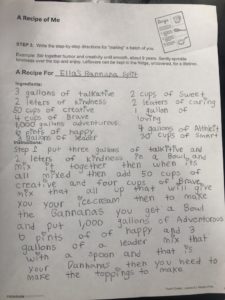 A Recipe of Me
STEP 2: Write the step-by-step directions for "baking" a batch of you.
Example: Stir together humor and creativity until smooth, about 9 years. Gently sprinkle
kindness over the top and enjoy. Leftovers can be kept in the fridge, uncovered, for a lifetime.
A Recipe For Ella's Bannana Split
Ingredients:
3 gallons of talkative
2 leters of kindness
50 cups of creative
4 cups of Brave
1,000 gallons adventurous
6 pints of happy
3 gallons of leader
2 cups of Sweet
2 leaters of caring
1 gallon of
loving
4 gallons of Athletit
30 cups of Smart
Instructions:
Step 1 put three gallons of talkitive and
2 leters of kindness in a Bowl and
mix it together then when its
all mixed then add 50 cups of
creative and four cups of Brave
mix that all up that will give
you your icecream then to make
the Bannanas you get a Bowl
and put 1,000 gallons of Adventorous
6 pints of of happy and 3
gallons of a leader mix that
with a spoon and that is
your Bannanas then you need to
make the toppings to make